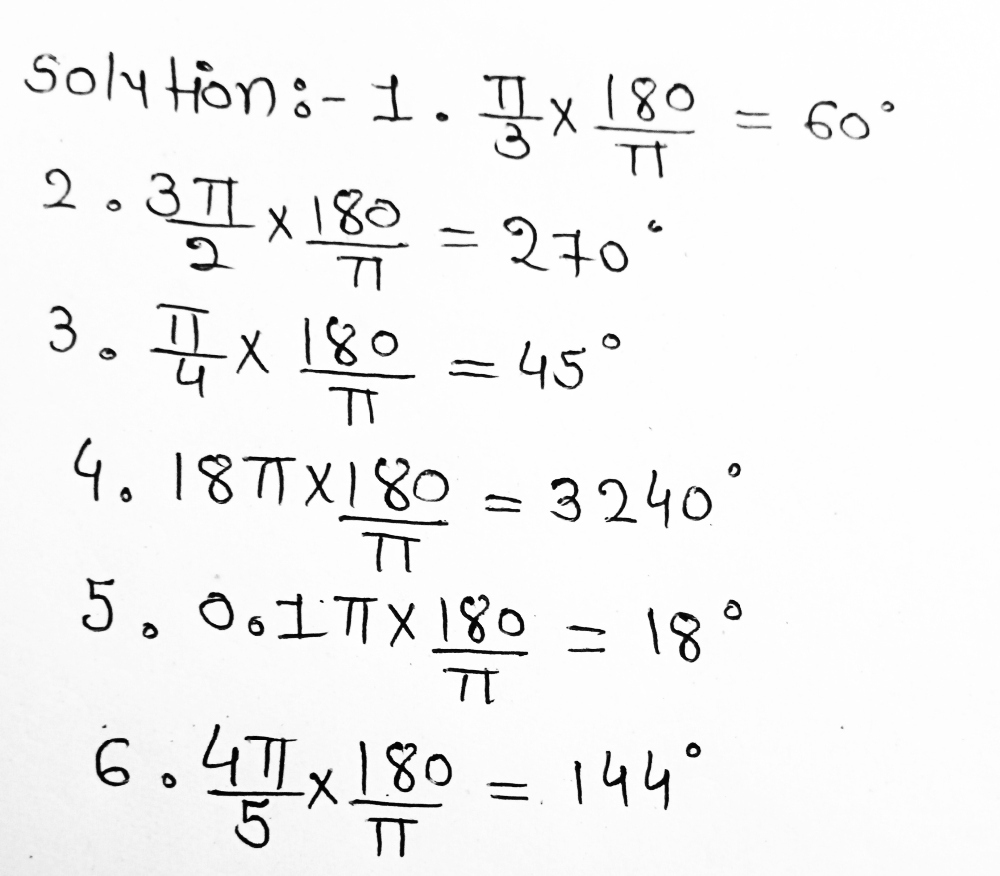 Solution:- 1. π/3 × 180/π = 60°
2. 3π/2 × 180/π = 270°
3. π/4 × 180/π = 45°
4. 18π × 180/π = 3240°
5. 0.1π × 180/π = 18°
6. 4π/5 × 180/π = 144°